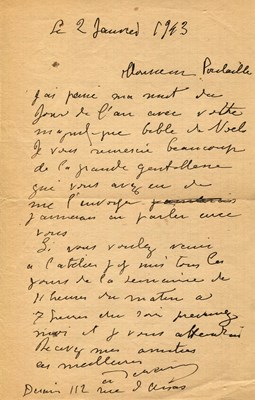 Le 2 Janvier 1943
Monsieur Poulaille
j'ai passé ma nuit du
Jour de l'an avec votre
magnifique bible de Noels
Je vous remercie beaucoup
de la grande gentillesse
que vous avez eu de
me l'envoyer
j'aimerais en parler avec
vous
Si vous voulez venir
a l'atelier j'y suis tous les
jours de la semaine de
11 heures du matin a
7 heures du soir prevenez
moi et je vous attendrai
Recevez mes amities
les meilleures
Derain 112 rue d'Alésia